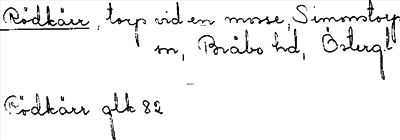 Rödkärr, torp vid en mosse, Simonstorp
sn, Bråbo hd, Östergl
Rödkärr glk 82